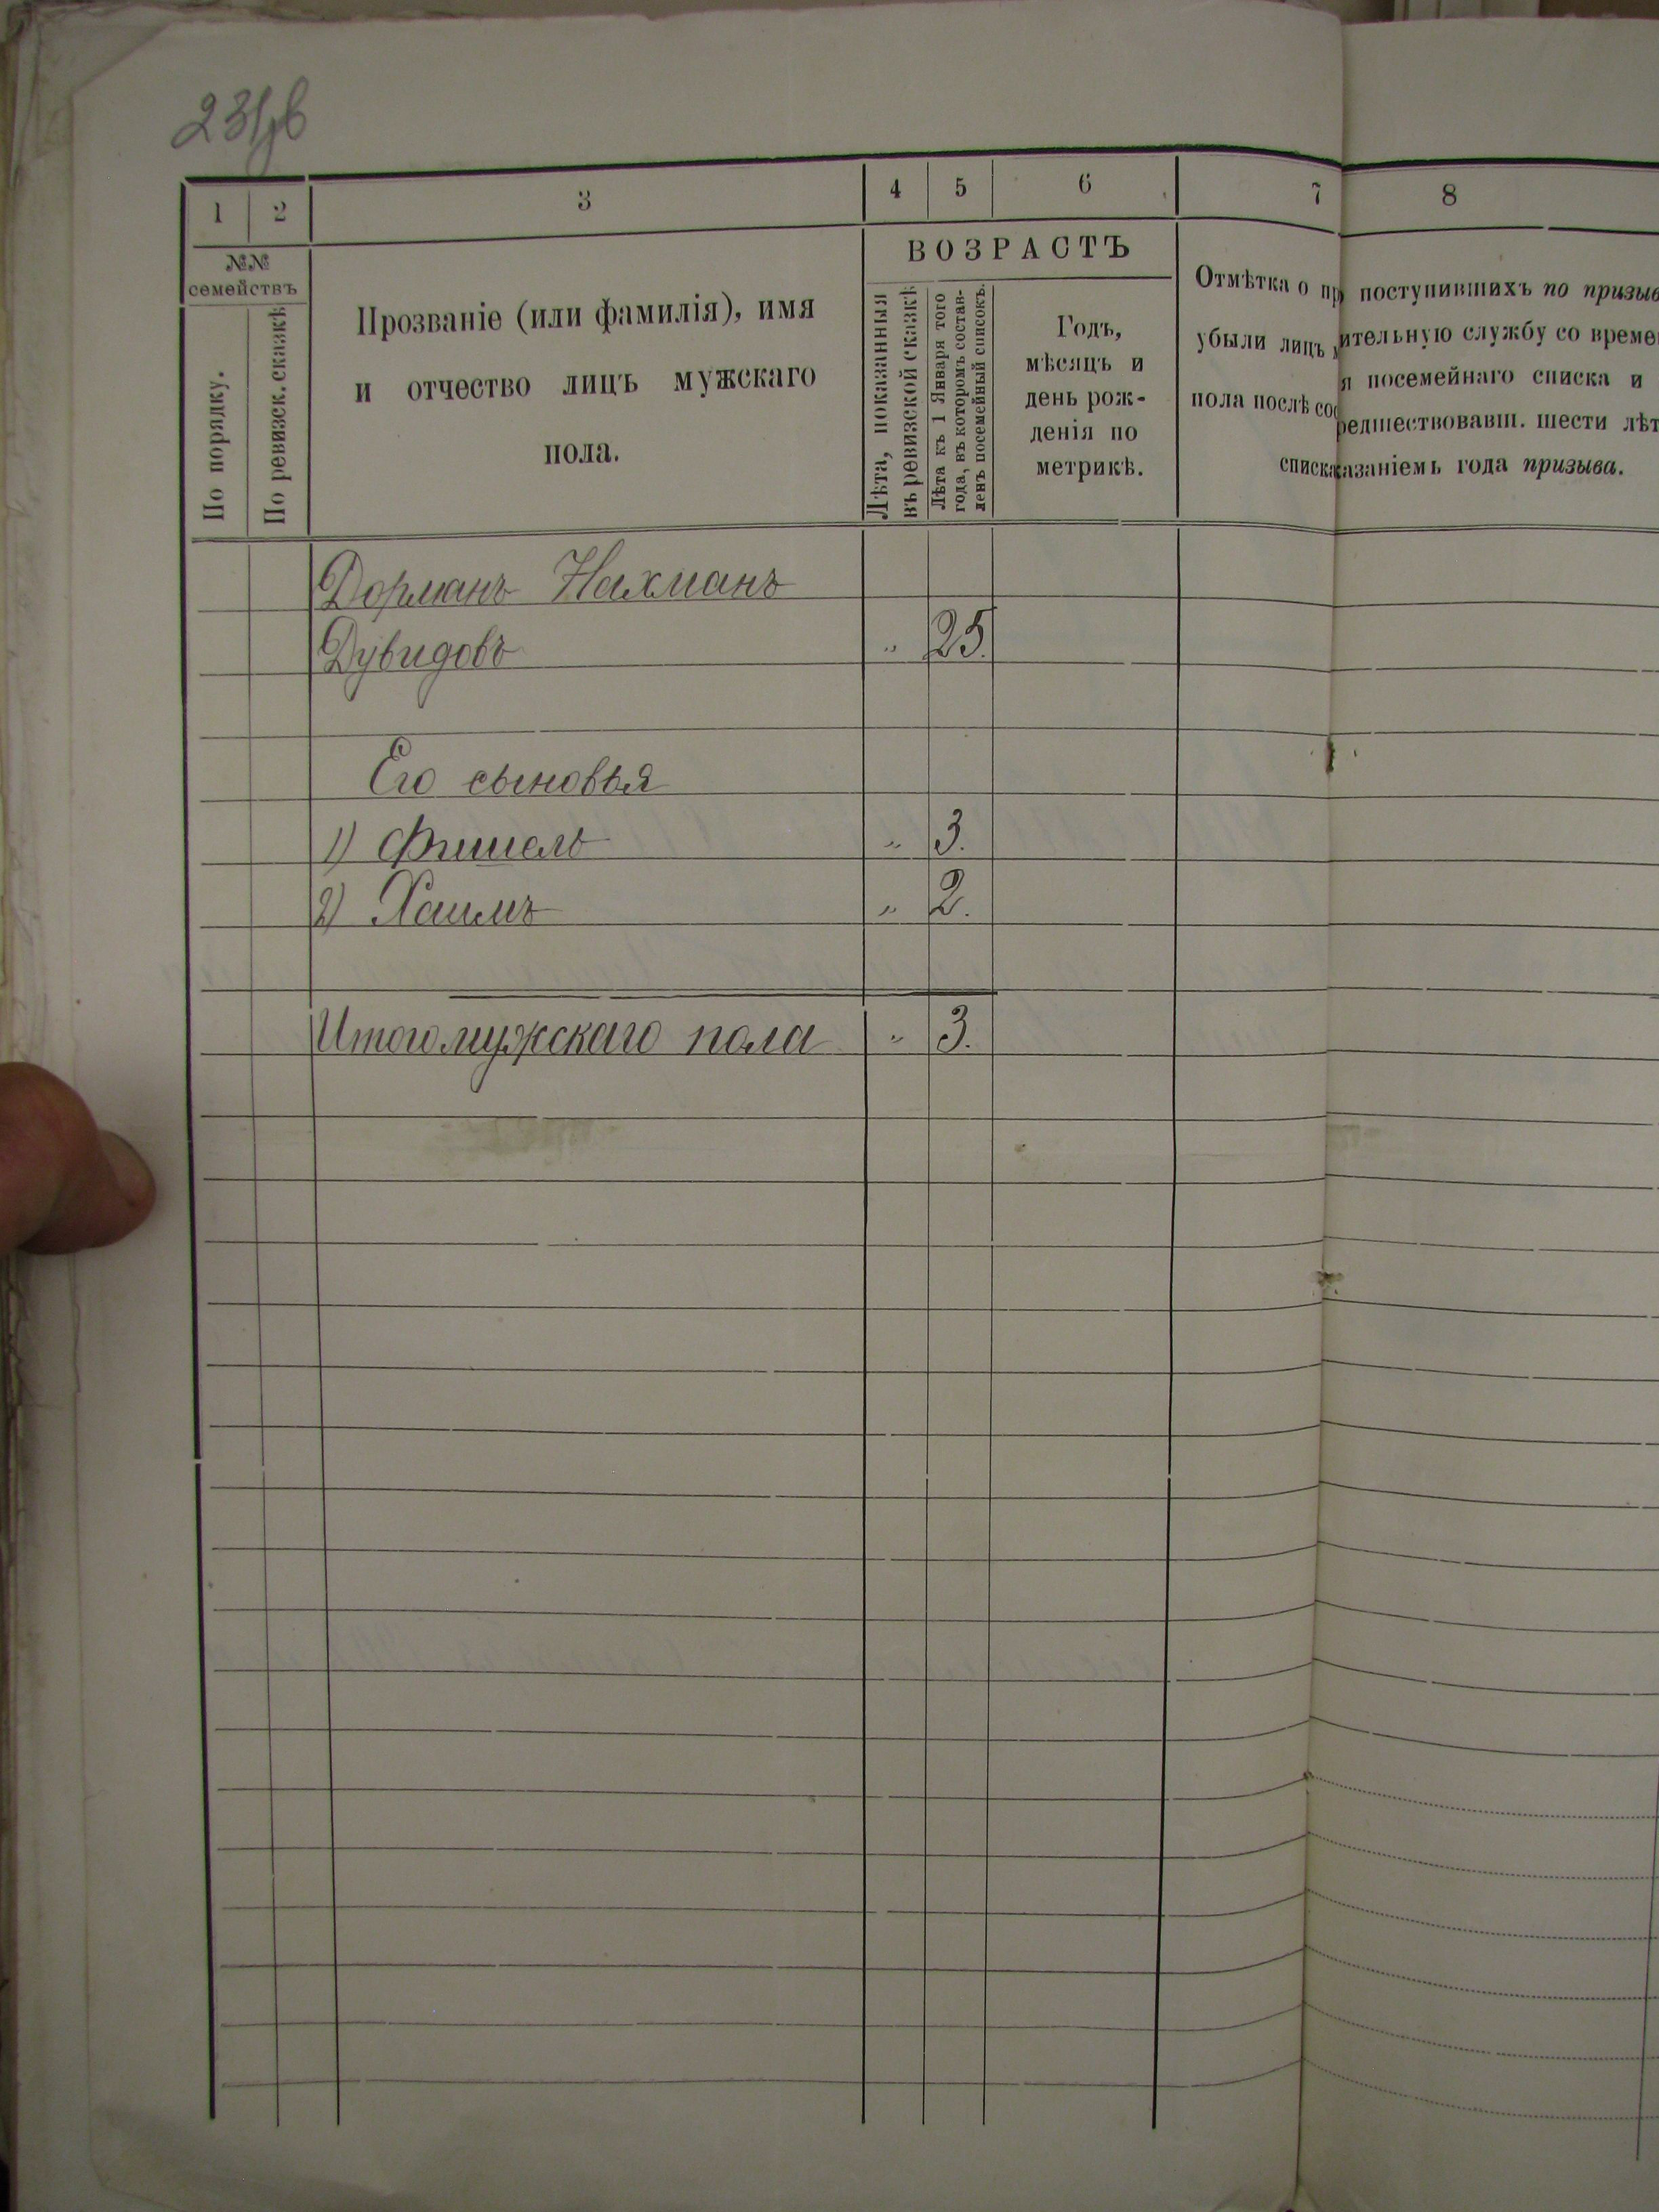 1 2 3 4 5 6 7 8
№№
семействъ
По порядку.
По ревизск. сказкѣ
Прозваніе (или фамилія), имя
и отчество лицъ мужскаго
пола.
ВОЗРАСТЪ
Лѣта, показанныя
въ ревизской сказкѣ
Лѣта къ 1 Января того
года, въ которомъ состав-
ленъ посемейный списокъ.
Годъ,
мѣсяцъ и
день рож-
денія по
метрикѣ.
Отмѣтка о пр
убыли лицъ
пола послѣ со
списка
поступившихъ по призыв
ительную службу со време
я посемейнаго списка и
редшествовавш. шести лѣт
казаніемъ года призыва.
Дорманъ Нахманъ
Дувидовъ " 25.
Его сыновья
1) Фишель " 3.
2) Хаимъ " 2.
Итого мужскаго пола " 3.